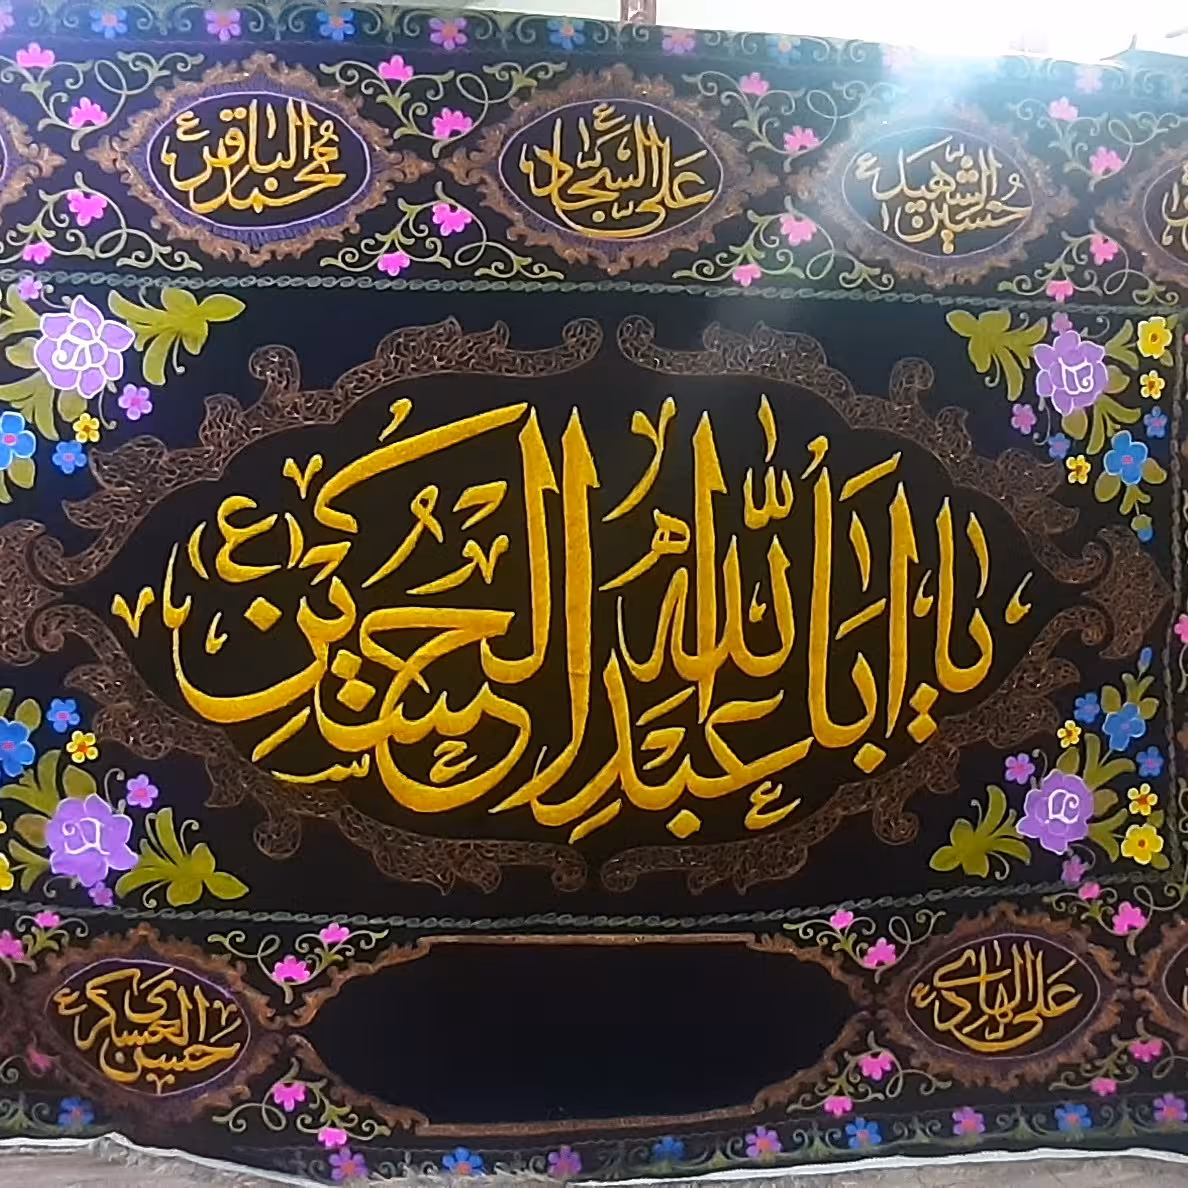 حسین الشهید ع
علی السجاد ع
محمد الباقر ع
یا اباعبدالله الحسین (ع)
علی الهادی ع
حسن العسکری ع